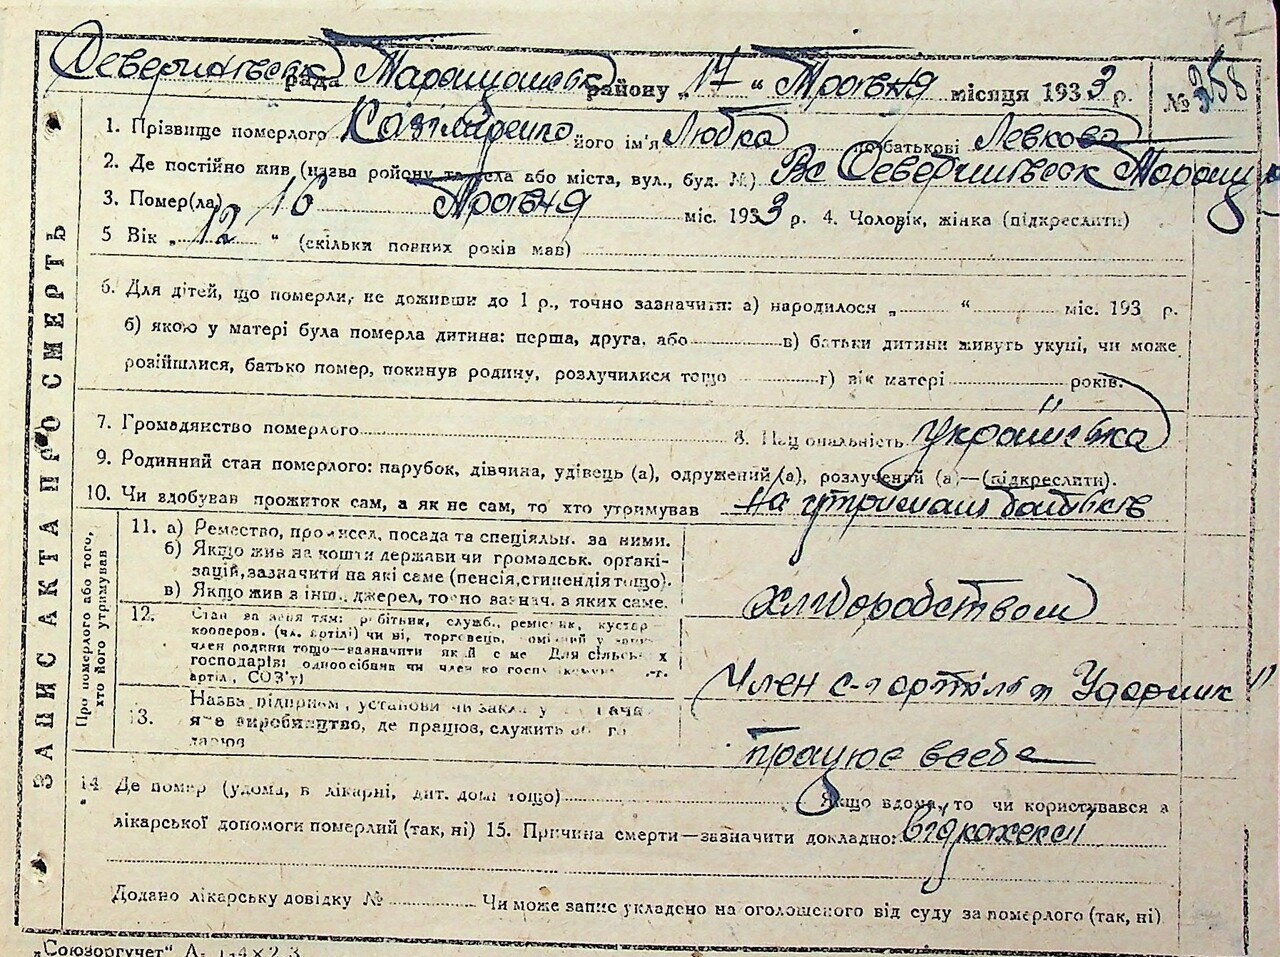 47
Северинівськ рада Таращанськ району „17“ Травня місяця 1933 р. № 358
1. Прізвище померлого його ім'я Любка по батькові Левкова
2. Де постійно жив (назва району та села або міста, вул., буд. №) Вс Северинівськ Таращ
3. Помер(ла) 16 Травня міс. 1933 р. 4. Чоловік, жінка (підкреслити)
5 Вік „12“ (скільки повних років мав)
6. Для дітей, що померли, не доживши до 1 р., точно зазначити: а) народилося „ “ міс. 193 р.
б) якою у матері була померла дитина: перша, друга, або в) батьки дитини живуть укупі, чи може
розійшлися, батько помер, покинув родину, розлучилися тощо г) вік матері років.
7. Громадянство померлого 8. Національність українка
9. Родинний стан померлого: парубок, дівчина, удівець (а), одружений (а), розлучений (а)—(підкреслити).
10. Чи здобував прожиток сам, а як не сам, то хто утримував на утриман батьків
ЗАПИС АКТА ПРО СМЕРТЬ
Про померлого або того, хто його утримував
11. а) Ремество, промисел, посада та спеціяльн. за ними.
б) Якщо жив на кошти держави чи громадськ. органі-
зацій, зазначити на які саме (пенсія, стипендія тощо).
в) Якщо жив з інш. джерел, точно зазнач. з яких саме.
хліборобством
12. Стан за заняттям: робітник, служб., ремісник, кустар
кооперов. (чл. артілі) чи ні, торговець,
член родини тощо—зазначити який саме Для сільськ х
господарів одноосібний чи член ко
артіл., СОЗ'у)
Член с-г артілі „Ударник“
13. Назва підприєм., установи чи
виробництво, де працює, служить або
працює в себе
14 Де помер (удома, в лікарні, дит. домі тощо) Якщо вдома, то чи користувався з
лікарської допомоги померлий (так, ні) 15. Причина смерти—зазначити докладно: від кахексії
Додано лікарську довідку № Чи може запис укладено на оголошеного від суду за померлого (так, ні)
„Союзоргучет“